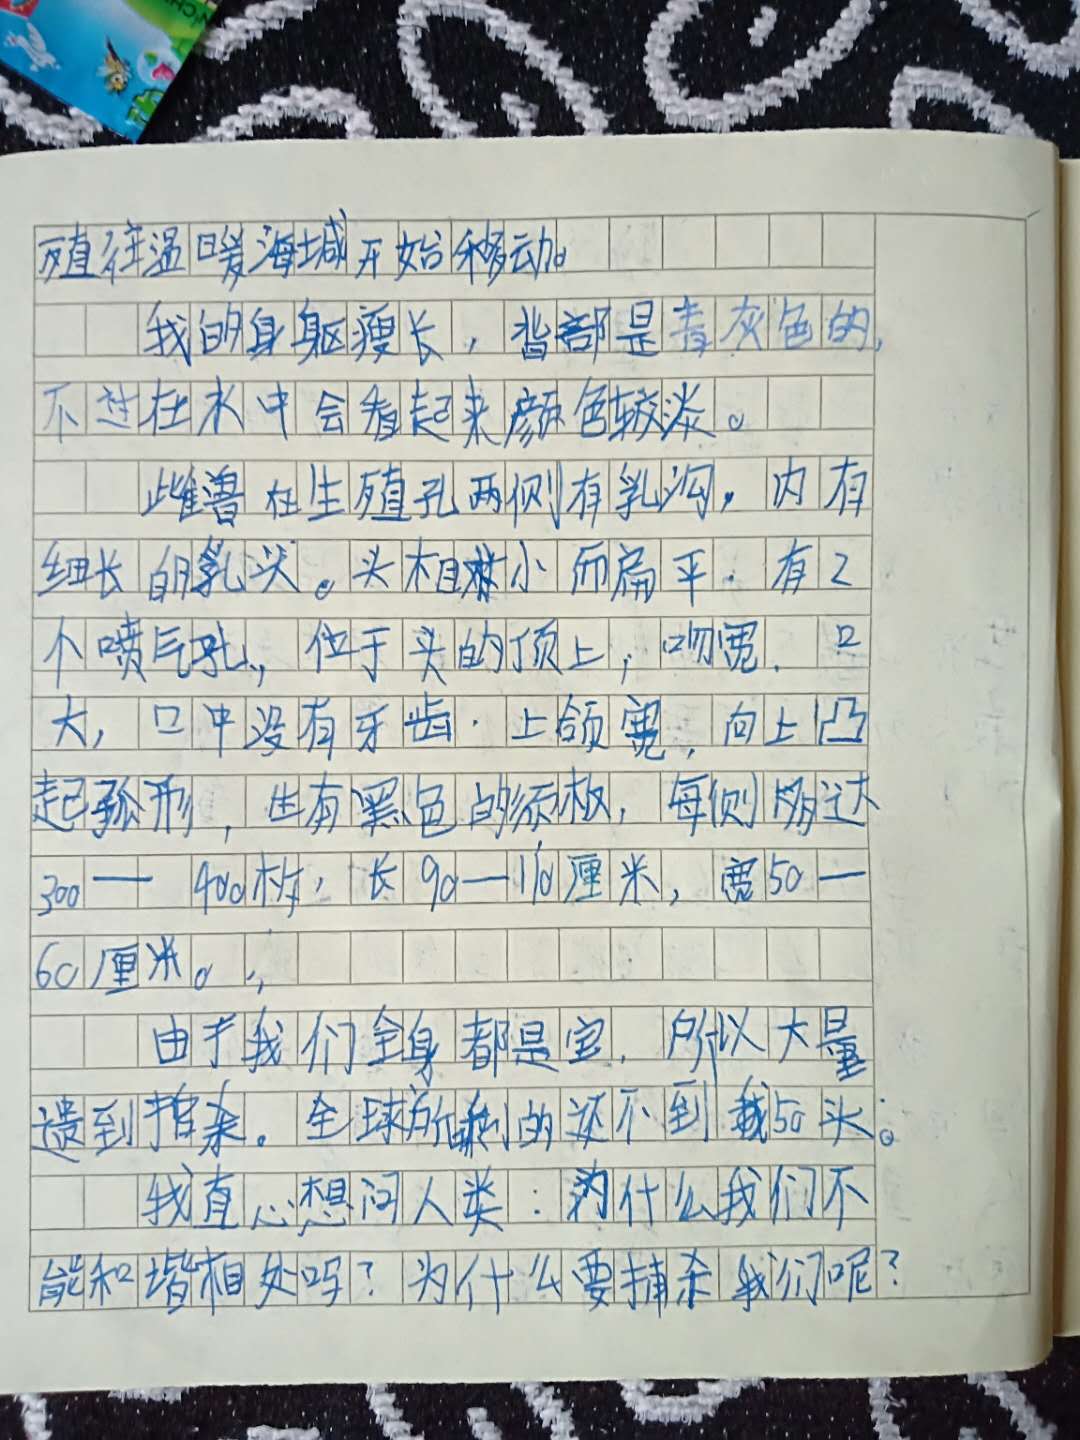 殖往温暖海域开始移动。
我的身躯瘦长，背部是青灰色的，
不过在水中会看起来颜色较淡。
雌兽在生殖孔两侧有乳沟，内有
细长的乳头。头相对小而扁平．有2
个喷气孔，位于头的顶上，吻宽．口
大，口中没有牙齿．上颌宽，向上凸
起弧形，生有黑色的须板，每侧多达
300— 400枚，长90—110厘米，宽50—
60厘米。，
由于我们全身都是宝．所以大量
遗到捕杀。全球所剩的还不到50头。
我真心想问人类：为什么我们不
能和谐相处吗？为什么要捕杀我们呢？